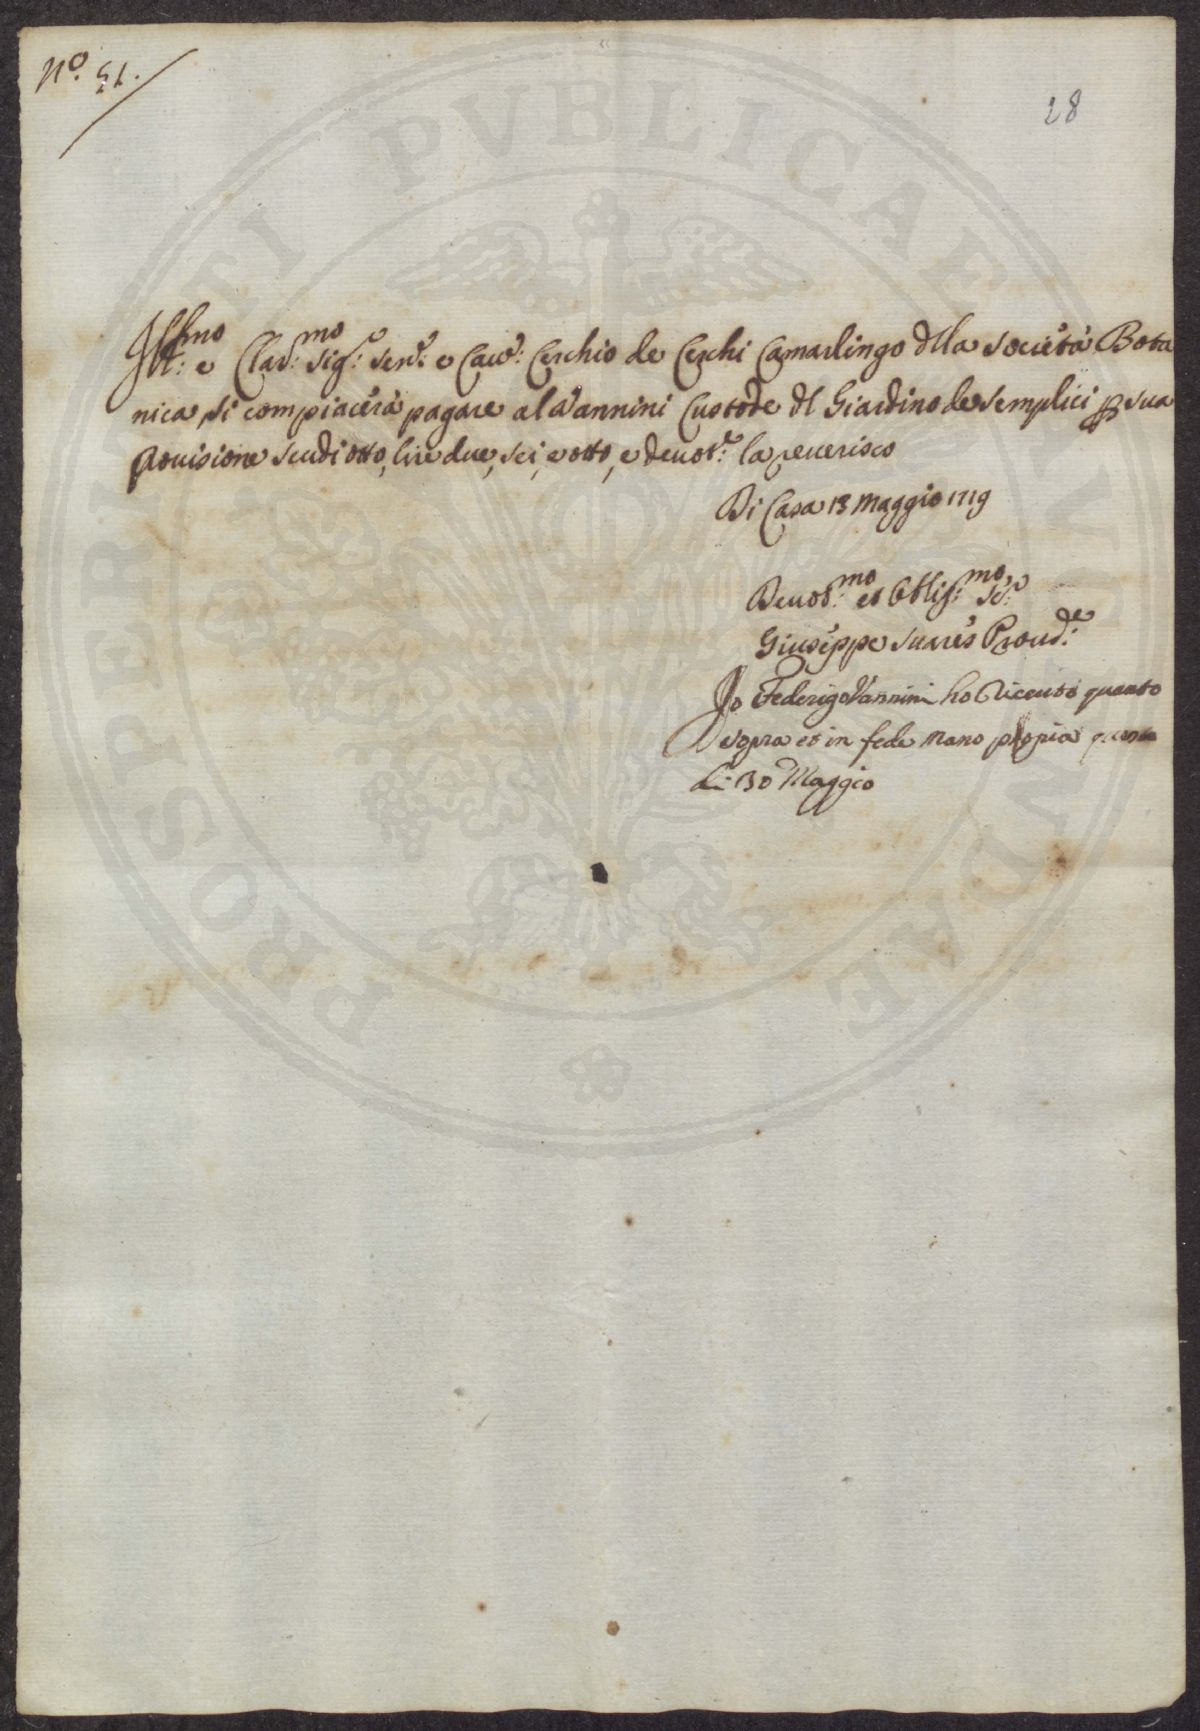 Nº. 51.
28
Ill:mo e Clar:mo Sig:e Sen:e e Cav:e Cerchio de Cerchi Camarlingo dlla Società Bota
nica si compiacerà pagare al Vannini Custode dl Giardino de Semplici p sua
Provisione scudi otto, lire due, sei, e otto, e devot:e la reverisco
Di Casa 13 Maggio 1719
Devot:mo et Obblig:mo Se:e
Giuseppe Suares Proved:e
Io Federigo Vannini ho Riceuto quanto
sopra et in fede mano propia questo
dì 30 Maggio
PROSPERITATI PVBLICAE ADAVGENDAE